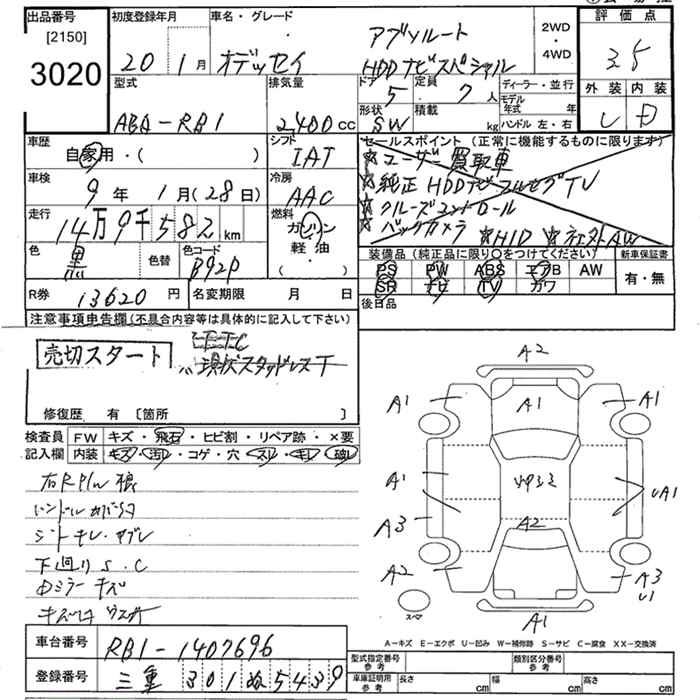 出品番号
[2150]
3020
初度登録年月
20 1月
車名・グレード
オデッセイ
アブソルート
HDDナビスペシャル
2WD
・
4WD
評価点
3.5
外装 内装
型式
ABA-RB1
排気量
2400cc
ドア
5
定員
7人
形状
SW
積載
kg
ディーラー・並行
モデル年式 年
ハンドル 左・右
車歴
自家用・( )
シフト
IAT
車検
9年 1月(28日)
冷房
AAC
走行
14万9千582km
燃料
ガソリン
軽油
色
黒
色替
色コード
B92P
R券 13620円
名変期限 月 日
セールスポイント(正常に機能するものに限ります)
☆ユーザー買取車
☆純正HDDナビフルセグTV
☆クルーズコントロール
☆バックカメラ ☆HID
装備品(純正品に限り○をつけてください)
新車保証書
PS PW ABS エアB AW
SR ナビ TV カワ
有・無
後日品
注意事項申告欄(不具合内容等は具体的に記入して下さい)
売切スタート
ETC
現状スタッドレスT
修復歴 有〔箇所 〕
検査員
記入欄
FW キズ・飛石・ヒビ割・リペア跡・×要
内装 キズ・汚れ・コゲ・穴・スレ・キレ・破レ
シートキレ・ヤブレ
下廻りS.C
ミラーキズ
車台番号 RB1-1407696
登録番号 三重 301 ぬ 5439
A2
A1 A1 A1
A1
A3 A2
A2 A3
A1
スペア
A-キズ E-エクボ U-凹み W-補修跡 S-サビ C-腐食 XX-交換済
型式指定番号
参考
類別区分番号
参考
車庫証明用
参考
長さ cm 幅 cm 高さ cm